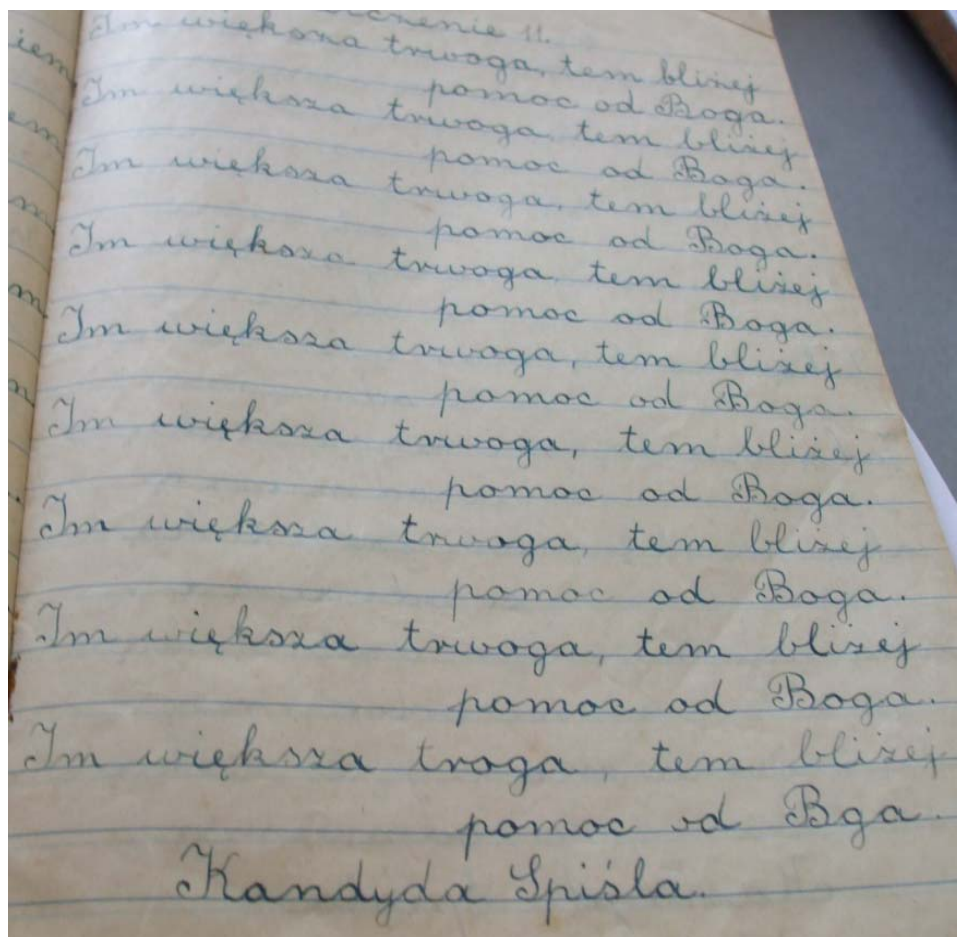 11.
Im większa trwoga, tem bliżej
pomoc od Boga.
Im większa trwoga, tem bliżej
pomoc od Boga.
Im większa trwoga, tem bliżej
pomoc od Boga.
Im większa trwoga, tem bliżej
pomoc od Boga.
Im większa trwoga, tem bliżej
pomoc od Boga.
Im większa trwoga, tem bliżej
pomoc od Boga.
Im większa trwoga, tem bliżej
pomoc od Boga.
Im większa trwoga, tem bliżej
pomoc od Boga.
Im większa troga, tem bliżej
pomoc od Bga.
Kandyda Spiśla.